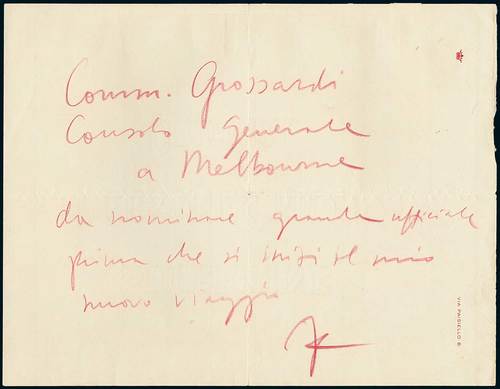 Comm. Grossardi
Console Generale
a Melbourne
da nominare grande ufficiale
prima che si inizi il mio
nuovo viaggio
VIA PAISIELLO 9.